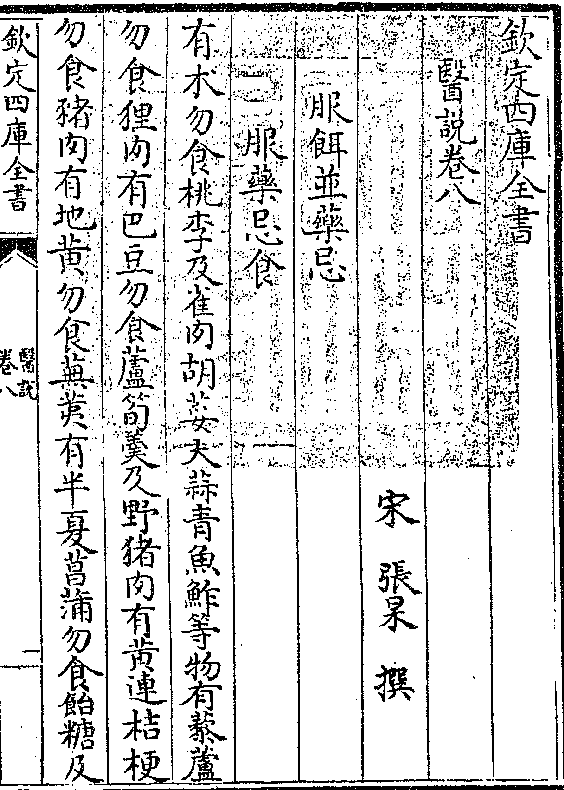 欽定四庫全書
醫說卷八
宋 張杲 撰
服餌並藥忌
服藥忌食
有朮勿食桃李及雀肉胡荽大蒜青魚鮓等物有藜蘆
勿食狸肉有巴豆勿食蘆筍羹及野猪肉有黄連桔梗
勿食豬肉有地黄勿食蕪荑有半夏菖蒲勿食飴糖及
欽定四庫全書
醫說
卷八
一